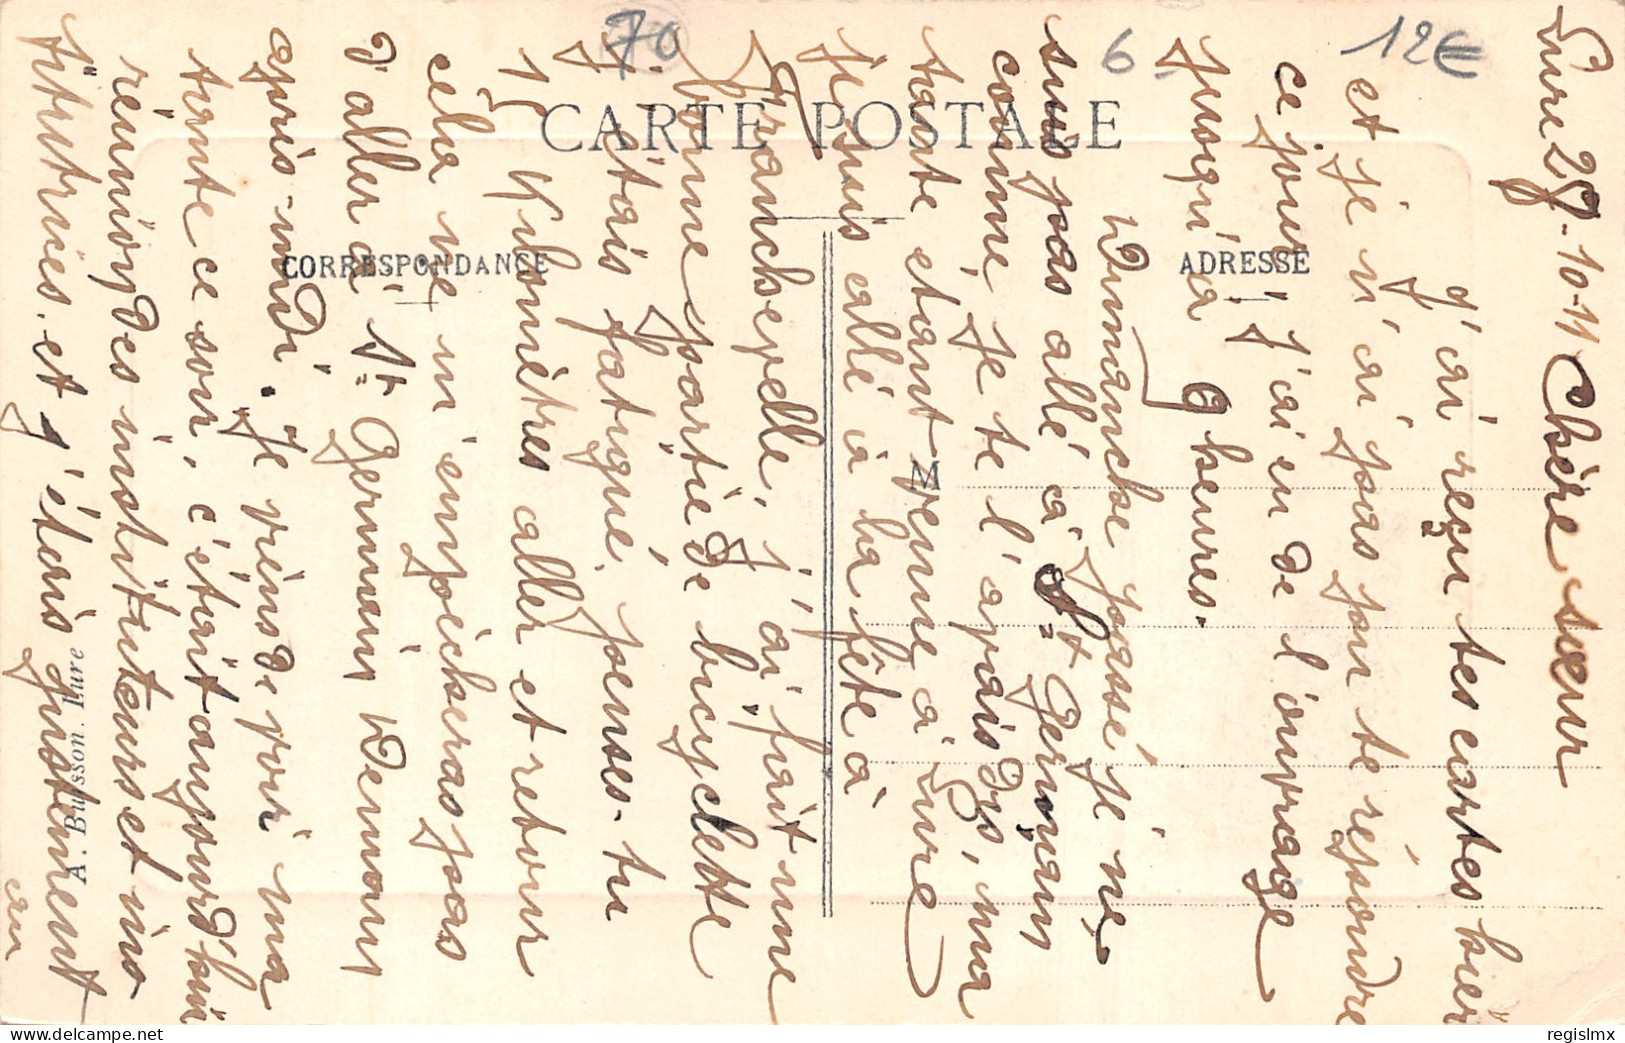 70
6
12€
CARTE POSTALE
CORRESPONDANCE
ADRESSE
M
A. Buisson. Lure
Lure 29-10-11 Chère sœur
J'ai reçu tes cartes hier
et je n'ai pas pu te répondre
ce jour, j'ai eu de l'ouvrage
jusqu'à 9 heures.
Dimanche passé je ne
suis pas allé à St Germain
comme je te l'avais dit, ma
tante étant venue à Lure
je suis allé à la fête à
Franchevelle, j'ai fait une
bonne partie de bicyclette
j'étais fatigué, penses-tu
15 Kilomètres aller et retour
cela ne m'empêchera pas
d'aller à St Germain demain
après-midi. Je viens de voir ma
tante ce soir, c'était aujourd'hui
réunion des instituteurs et ins
titutrices. et j'étais justement
au
regislmx